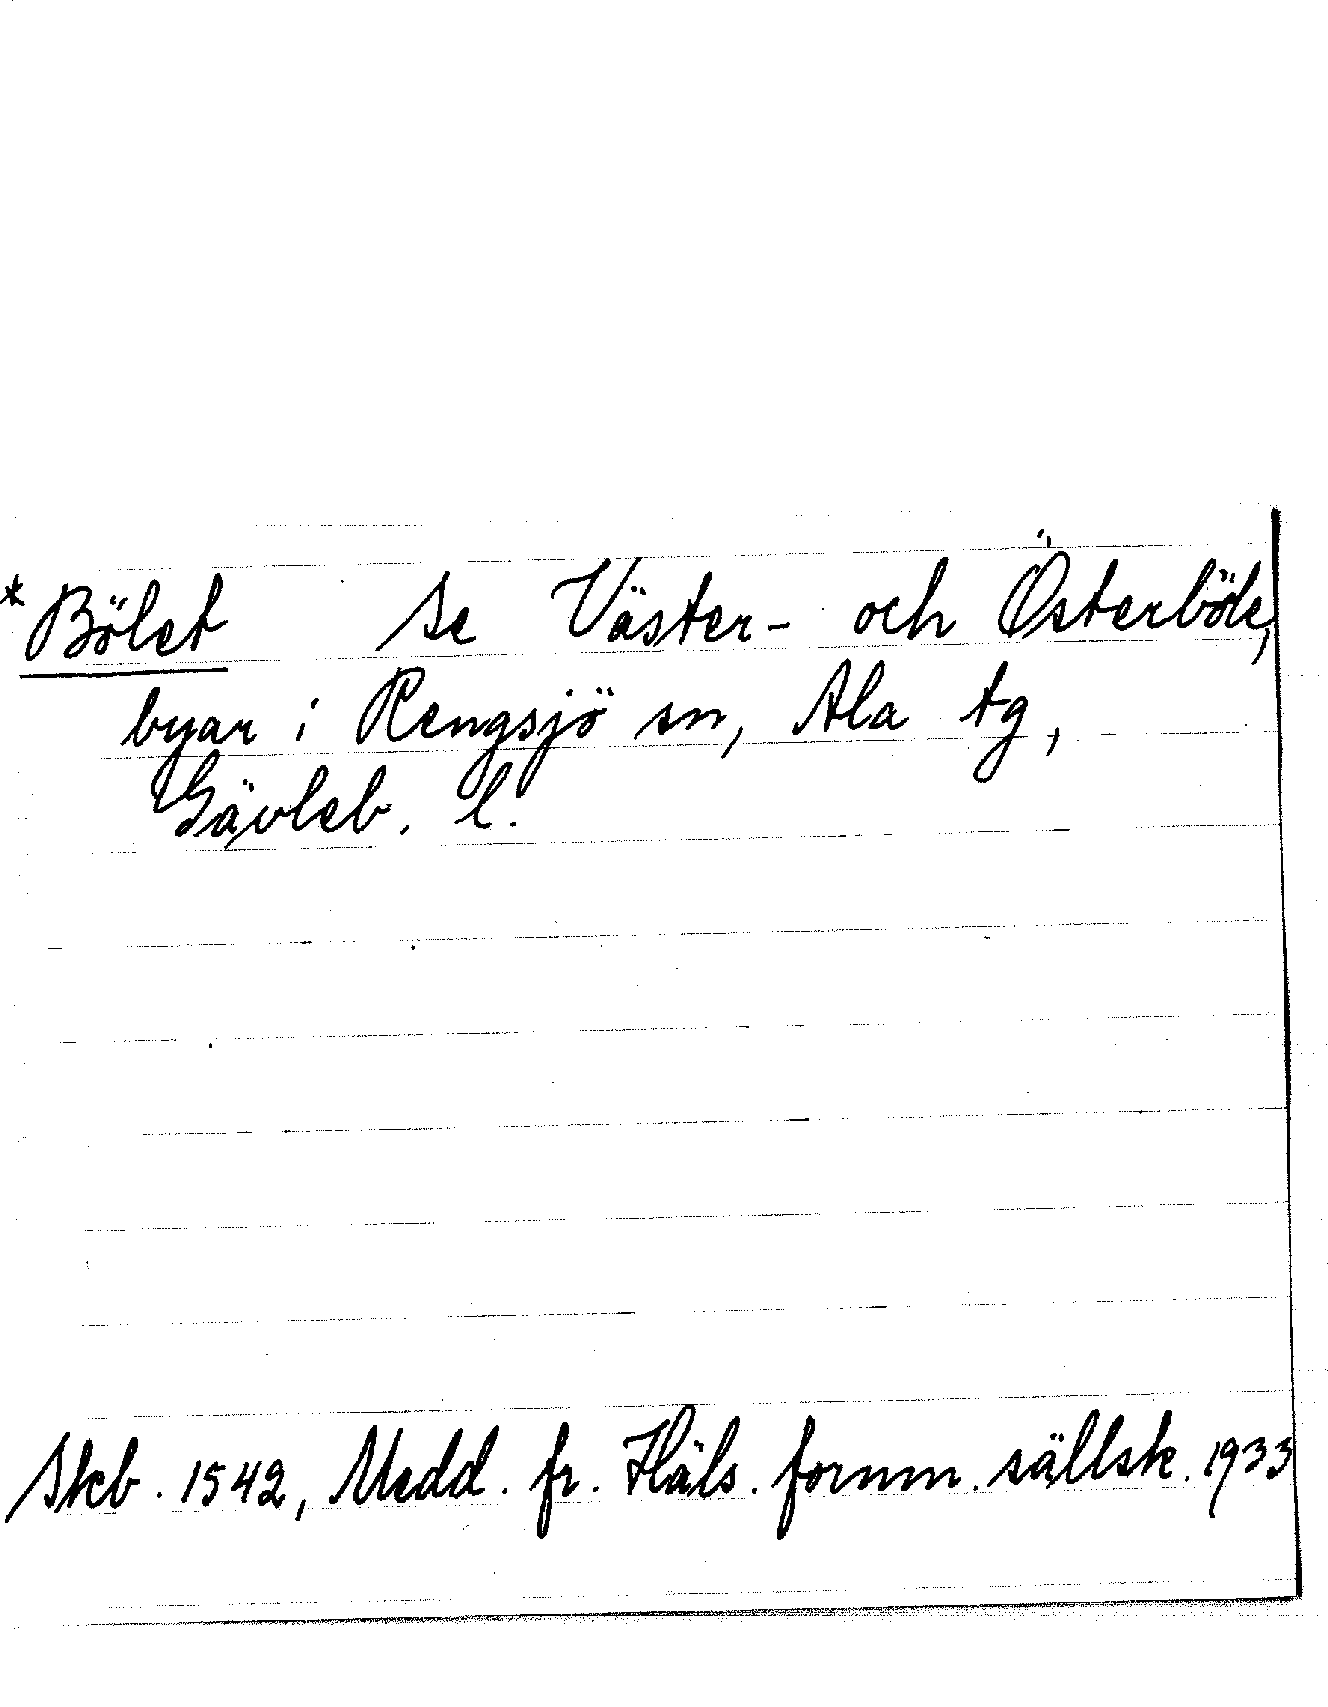 *Bölet se Väster- och Österböle,
byar i Rengsjö sn, Ala tg,
Gävleb. l.
Skb. 1542, Medd. fr. Häls. fornm. sällsk. 1933